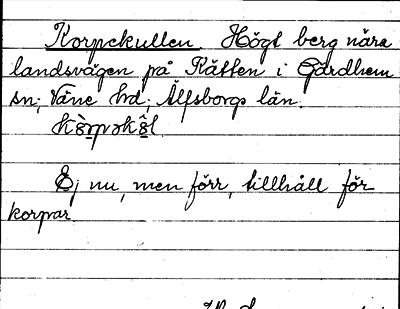 Korpekullen. Högt berg nära
landsvägen på Kåtten i Gärdhem
sn; Väne hd; Älfsborgs län.
Ej nu, men förr, tillhåll för
korpar